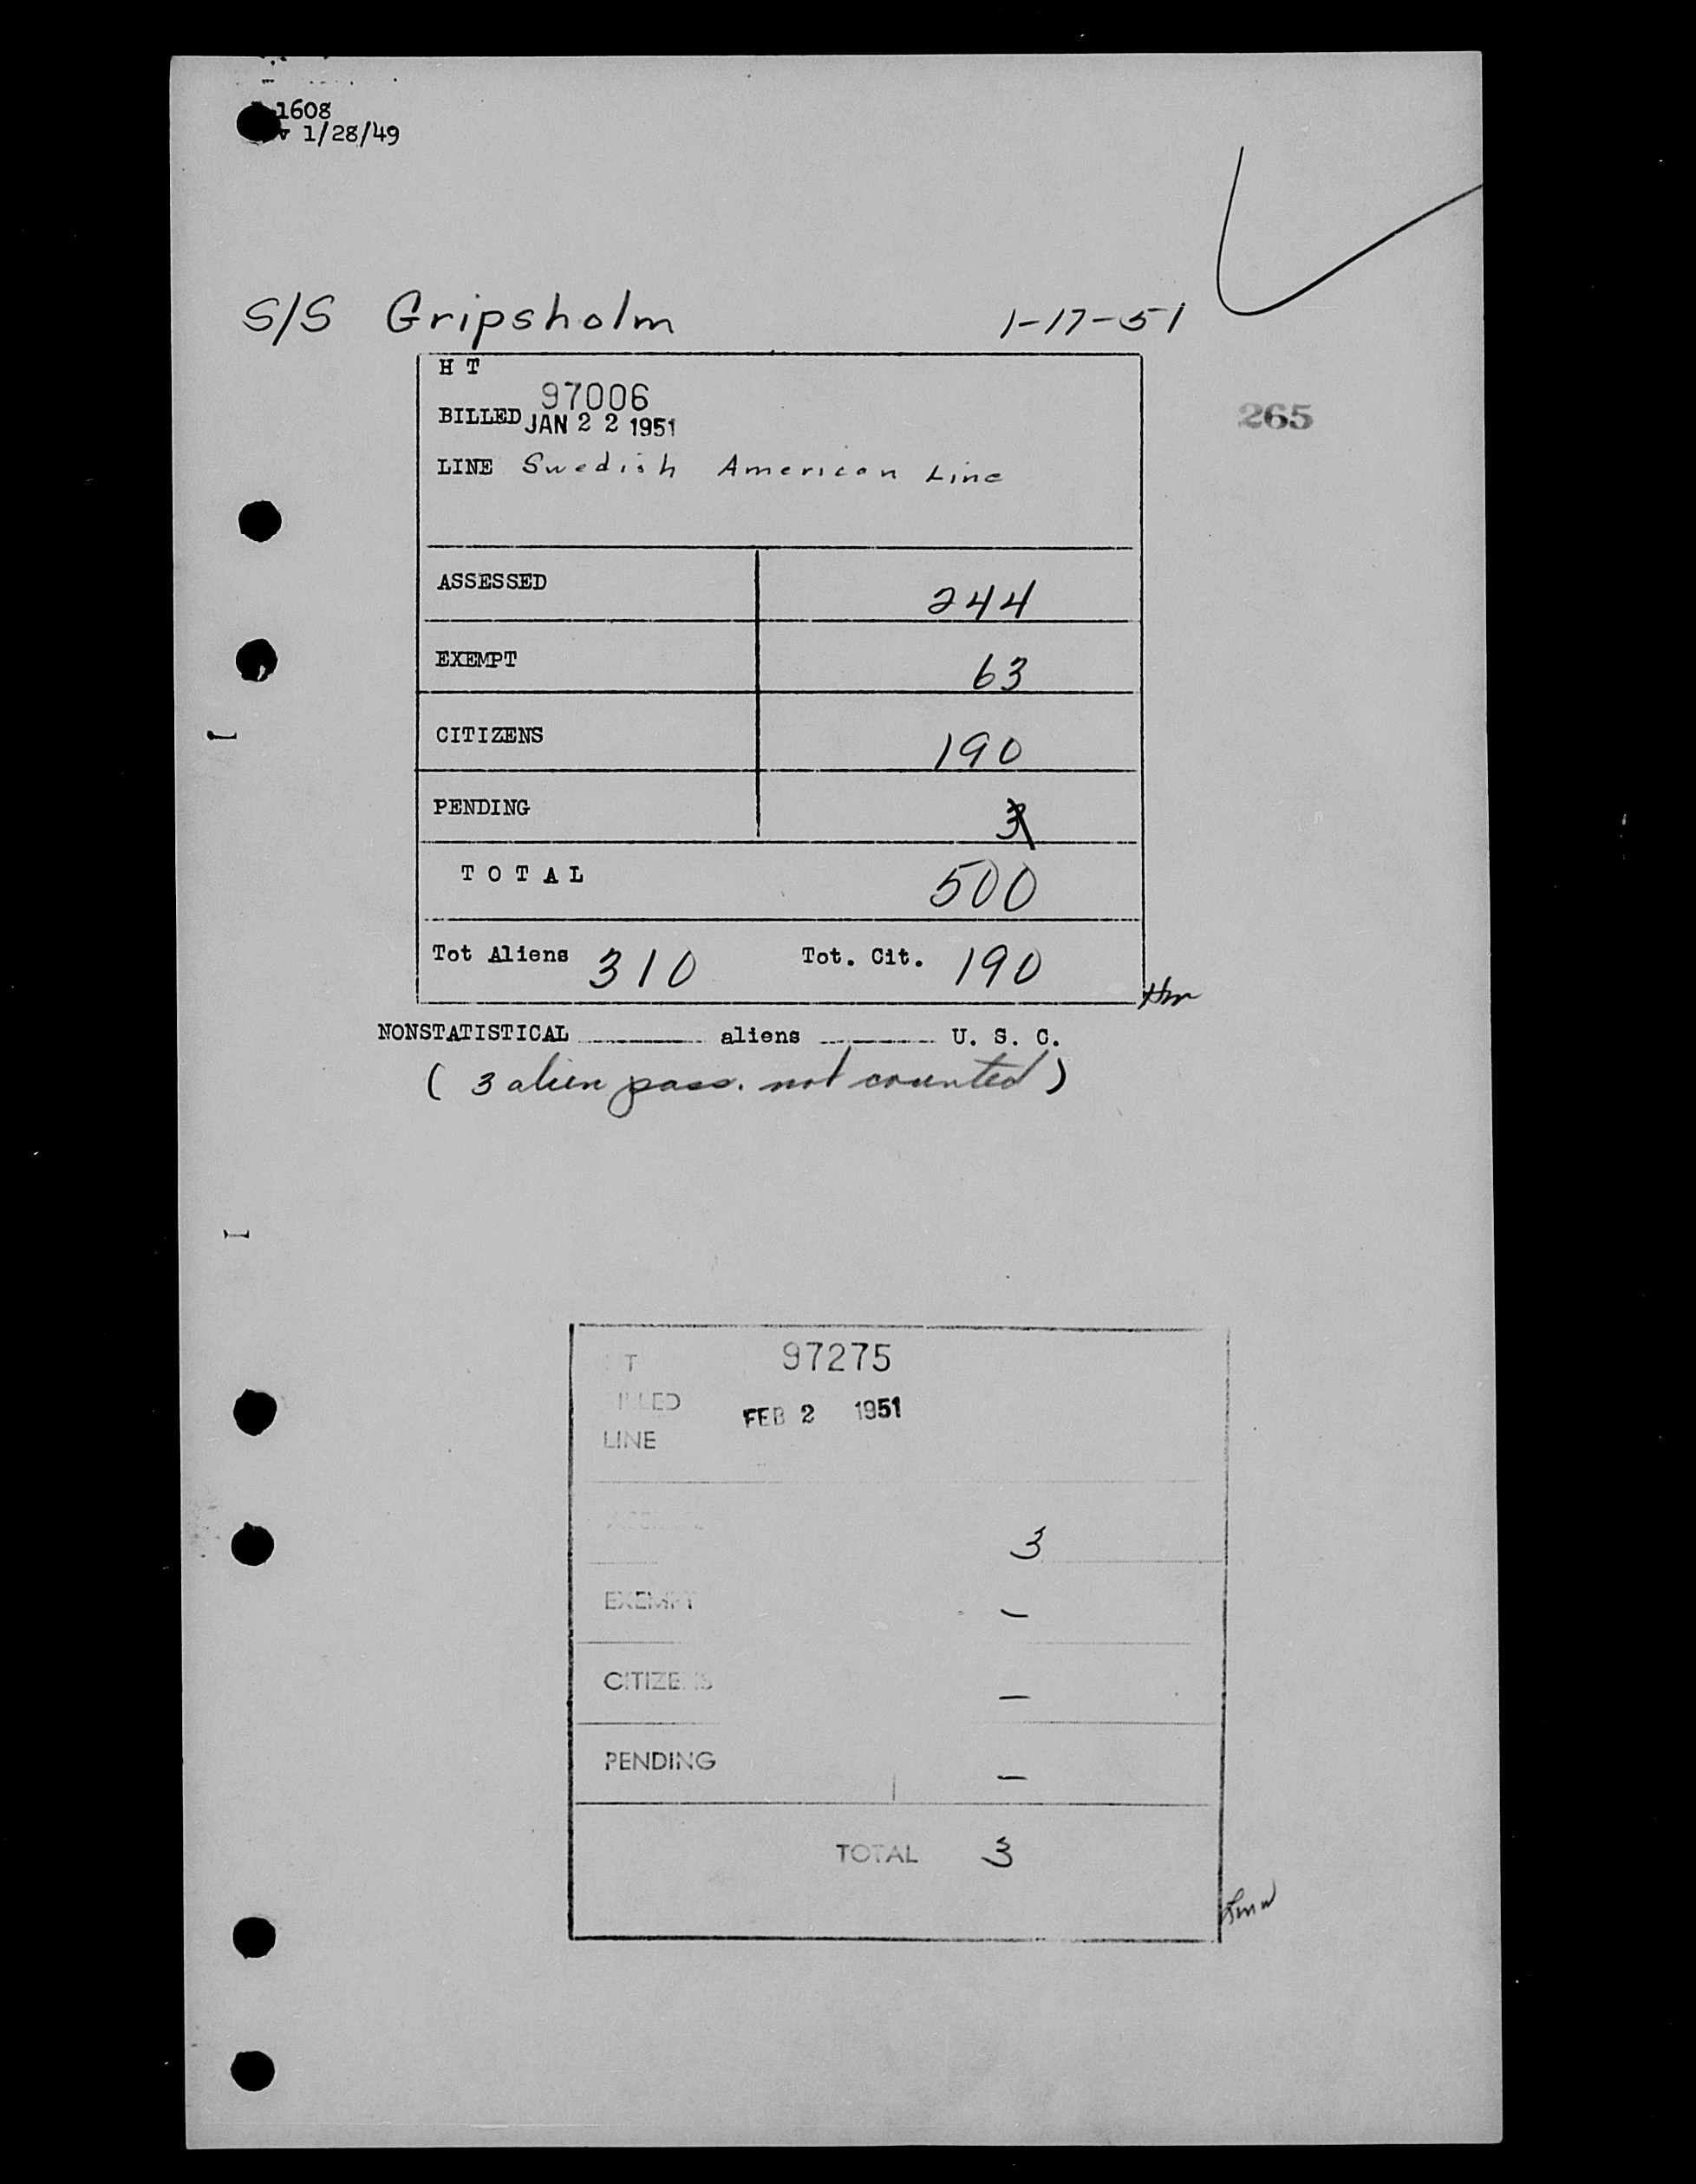 1608
1/28/49
S/S Gripsholm 1-17-51
H T
97006
BILLED JAN 22 1951
265
LINE Swedish American Line
ASSESSED 244
EXEMPT 63
CITIZENS 190
PENDING 3
T O T A L 500
Tot Aliens 310 Tot. Cit. 190
NONSTATISTICAL aliens U. S. C.
( 3 alien pass. not counted )
T 97275
ILLED FEB 2 1951
LINE
3
EXEMPT —
CITIZENS —
PENDING —
TOTAL 3